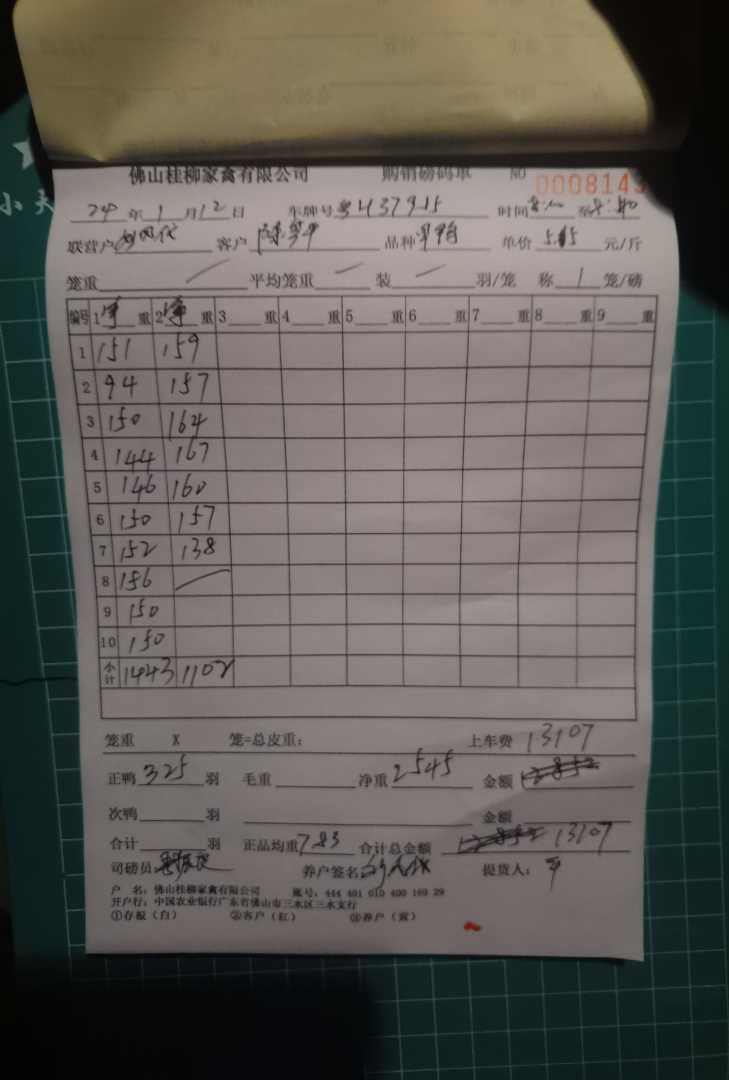 佛山桂柳家禽有限公司 购销磅码单 NO 0008143
24年1月12日 车牌号 时间 至
联营户 客户 品种 单价 元/斤
笼重 平均笼重 装 羽/笼 称 1 笼/磅
编号 1净重 2净重 3 重 4 重 5 重 6 重 7 重 8 重 9 重
1 151 159
2 94 157
3 150 164
4 144 167
5 146 160
6 150 157
7 152 138
8 156
9 150
10 150
小计 1443 1102
笼重 X 笼=总皮重: 上车费 13107
正鸭 325 羽 毛重 净重 2545 金额
次鸭 羽 金额
合计 羽 正品均重 7.83 合计总金额 13107
司磅员 养户签名 提货人:
户 名: 佛山桂柳家禽有限公司 账号: 444 401 010 400 169 29
开户行: 中国农业银行广东省佛山市三水区三水支行
①存根(白) ②客户(红) ③养户(黄)
小天